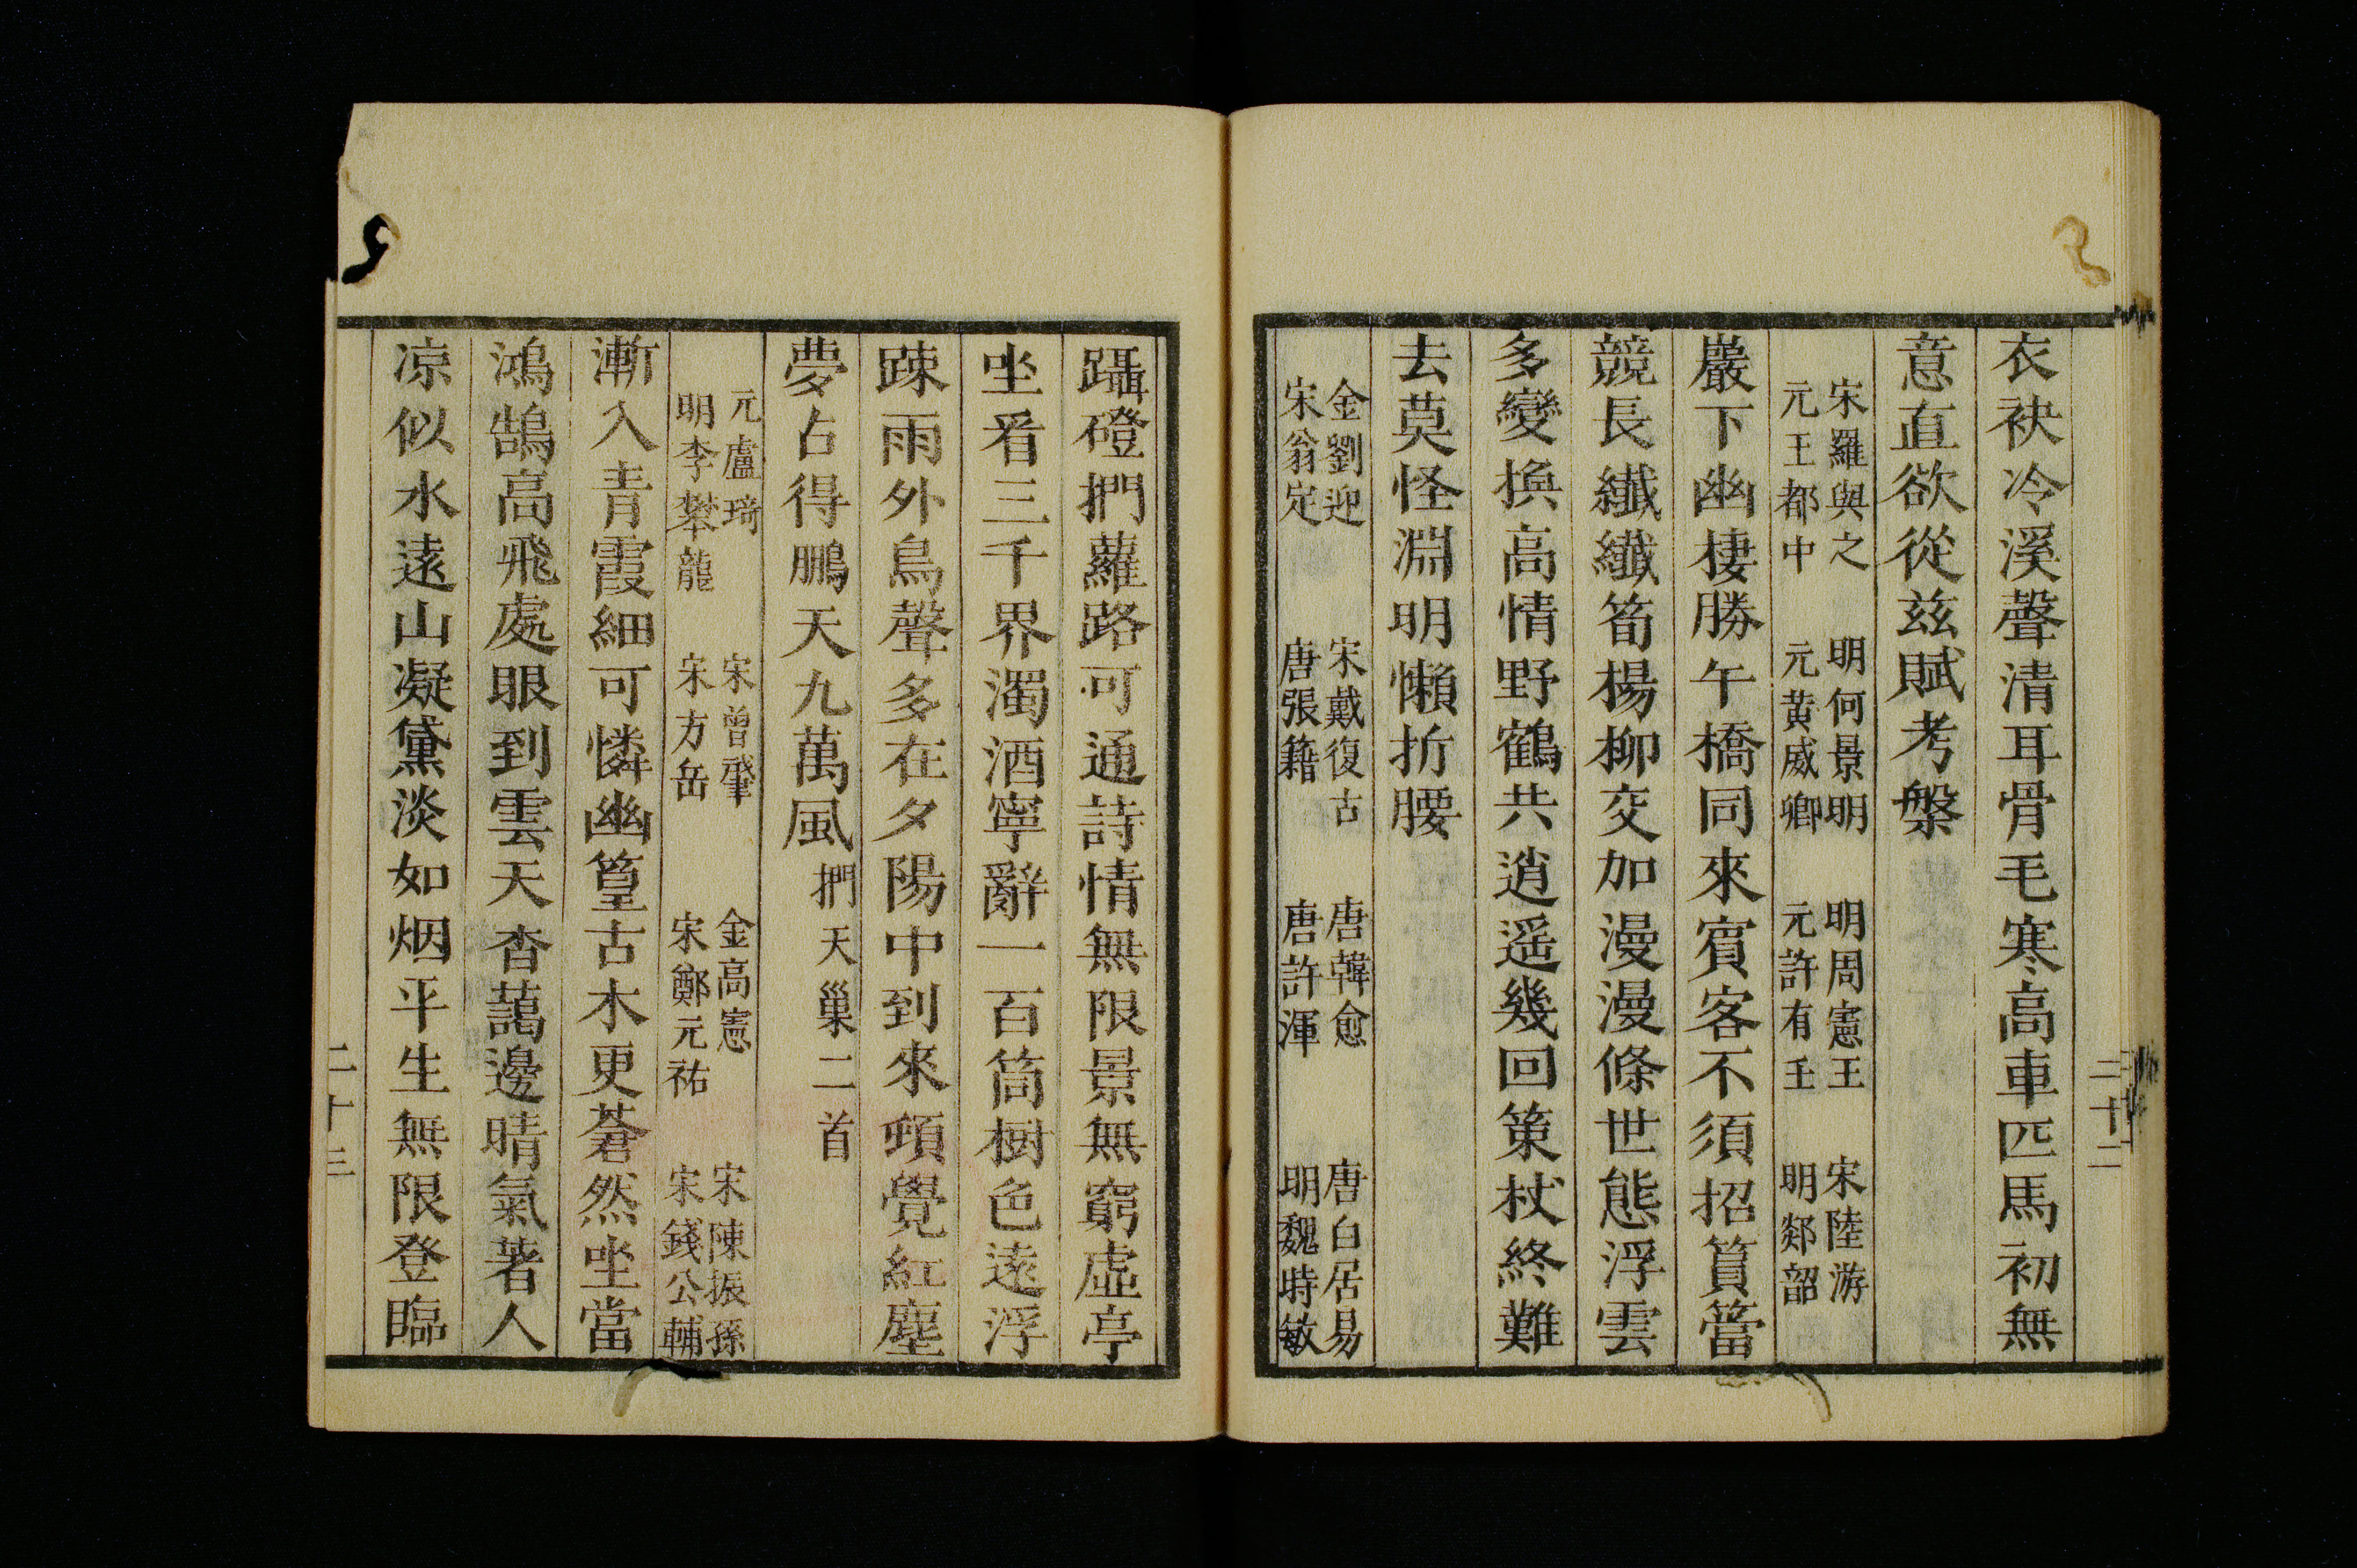 二十二
衣袂冷溪聲清耳骨毛寒高車匹馬初無
意直欲從茲賦考槃
宋羅與之 明何景明 明周憲王 宋陸游
元王都中 元黄威卿 元許有壬 明郯韶
巖下幽棲勝午橋同來賓客不須招篔簹
競長纖纖筍楊柳交加漫漫條世態浮雲
多變換高情野鶴共逍遥幾回策杖終難
去莫怪淵明懶折腰
金劉迎 宋戴復古 唐韓愈 唐白居易
宋翁定 唐張籍 唐許渾 明魏時敏
躡磴捫蘿路可通詩情無限景無窮虛亭
坐看三千界濁酒寧辭一百筩樹色遠浮
踈雨外鳥聲多在夕陽中到來頓覺紅塵
夢占得鵬天九萬風捫天巢二首
元盧琦 宋曾肇 金高憲 宋陳振孫
明李攀龍 宋方岳 宋鄭元祐 宋錢公輔
漸入青霞細可憐幽篁古木更蒼然坐當
鴻鵠高飛處眼到雲天杳藹邊晴氣著人
凉似水遠山凝黛淡如烟平生無限登臨
二十三